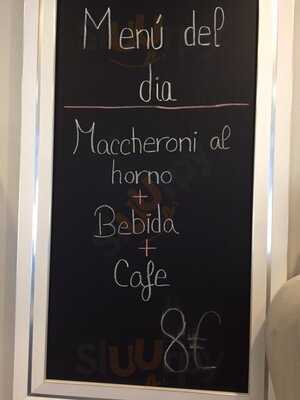 Menú del
dia
Maccheroni al
horno
+
Bebida
+
Cafe
8€
sluurpy